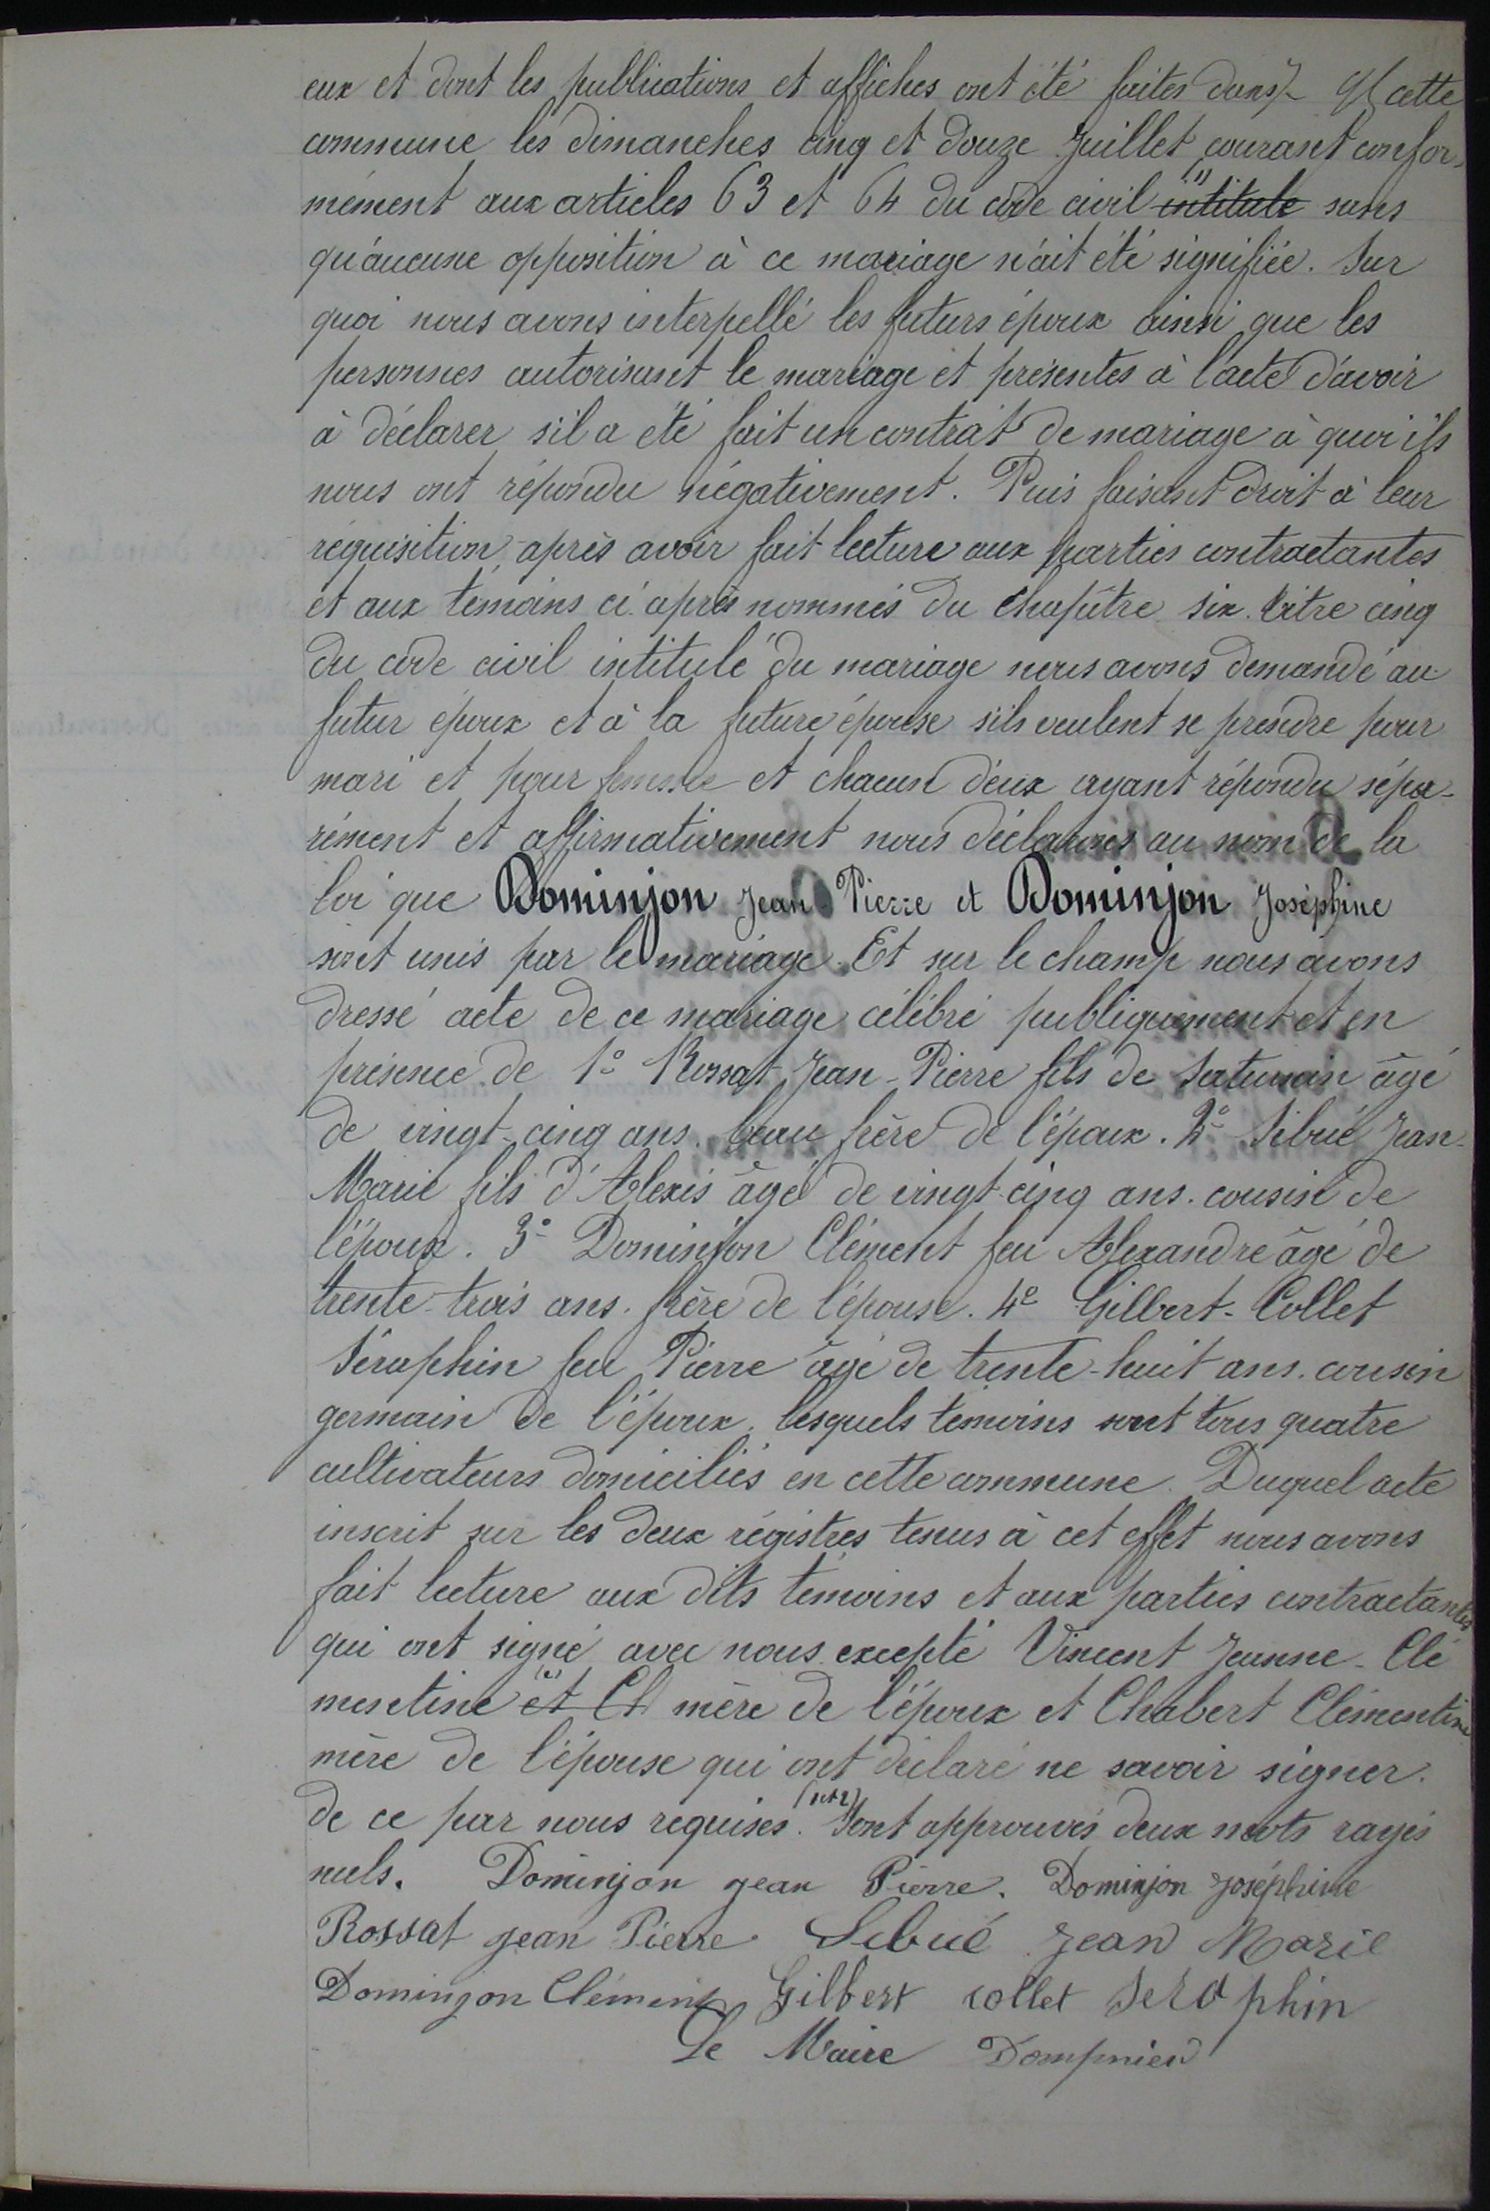 eux et dont les publications et affiches ont été faites dans cette
commune les dimanches cinq et douze Juillet courant confor-
mément aux articles 63 et 64 du code civil (1) intitulé sans
qu'aucune opposition à ce mariage n'ait été signifiée. Sur
quoi nous avons interpellé les futurs époux ainsi que les
personnes autorisant le mariage et présentes à l'acte d'avoir
à déclarer s'il a été fait un contrat de mariage à quoi ils
nous ont répondu négativement. Puis faisant droit à leur
réquisition, après avoir fait lecture aux parties contractantes
et aux témoins ci-après nommés du chapître six. titre cinq
du code civil intitulé du mariage nous avons demandé au
futur époux et à la future épouse s'ils veulent se prendre pour
mari et pour femme et chacun d'eux ayant répondu sépa-
rément et affirmativement nous déclarons au nom de la
loi que Dominjon Jean Pierre et Dominjon Joséphine
sont unis par le mariage. Et sur le champ nous avons
dressé acte de ce mariage célébré publiquement et en
présence de 1° Rossat Jean-Pierre fils de Saturnin âgé
de vingt-cinq ans. beau frère de l'époux. 2° Sibué Jean-
Marie fils d'Alexis âgé de vingt-cinq ans. cousin de
l'époux. 3° Dominjon Clément feu Alexandre âgé de
trente-trois ans. frère de l'épouse. 4° Gilbert-Collet
Séraphin feu Pierre âgé de trente-huit ans. cousin
germain de l'époux. lesquels témoins sont tous quatre
cultivateurs domiciliés en cette commune. Duquel acte
inscrit sur les deux régistres tenus à cet effet nous avons
fait lecture aux dits témoins et aux parties contractantes
qui ont signé avec nous excepté Vincent Jeanne-Clé
mentine et Ch mère de l'époux et Chabert Clémentine
mère de l'épouse qui ont déclaré ne savoir signer.
de ce par nous requises. (1 et 2) Sont approuvés deux mots rayés
nuls. Dominjon jean Pierre. Dominjon Joséphine
Rossat jean Pierre Sibué Jean Marie
Dominjon Clément Gilbert collet Seraphin
Le Maire Dompnier